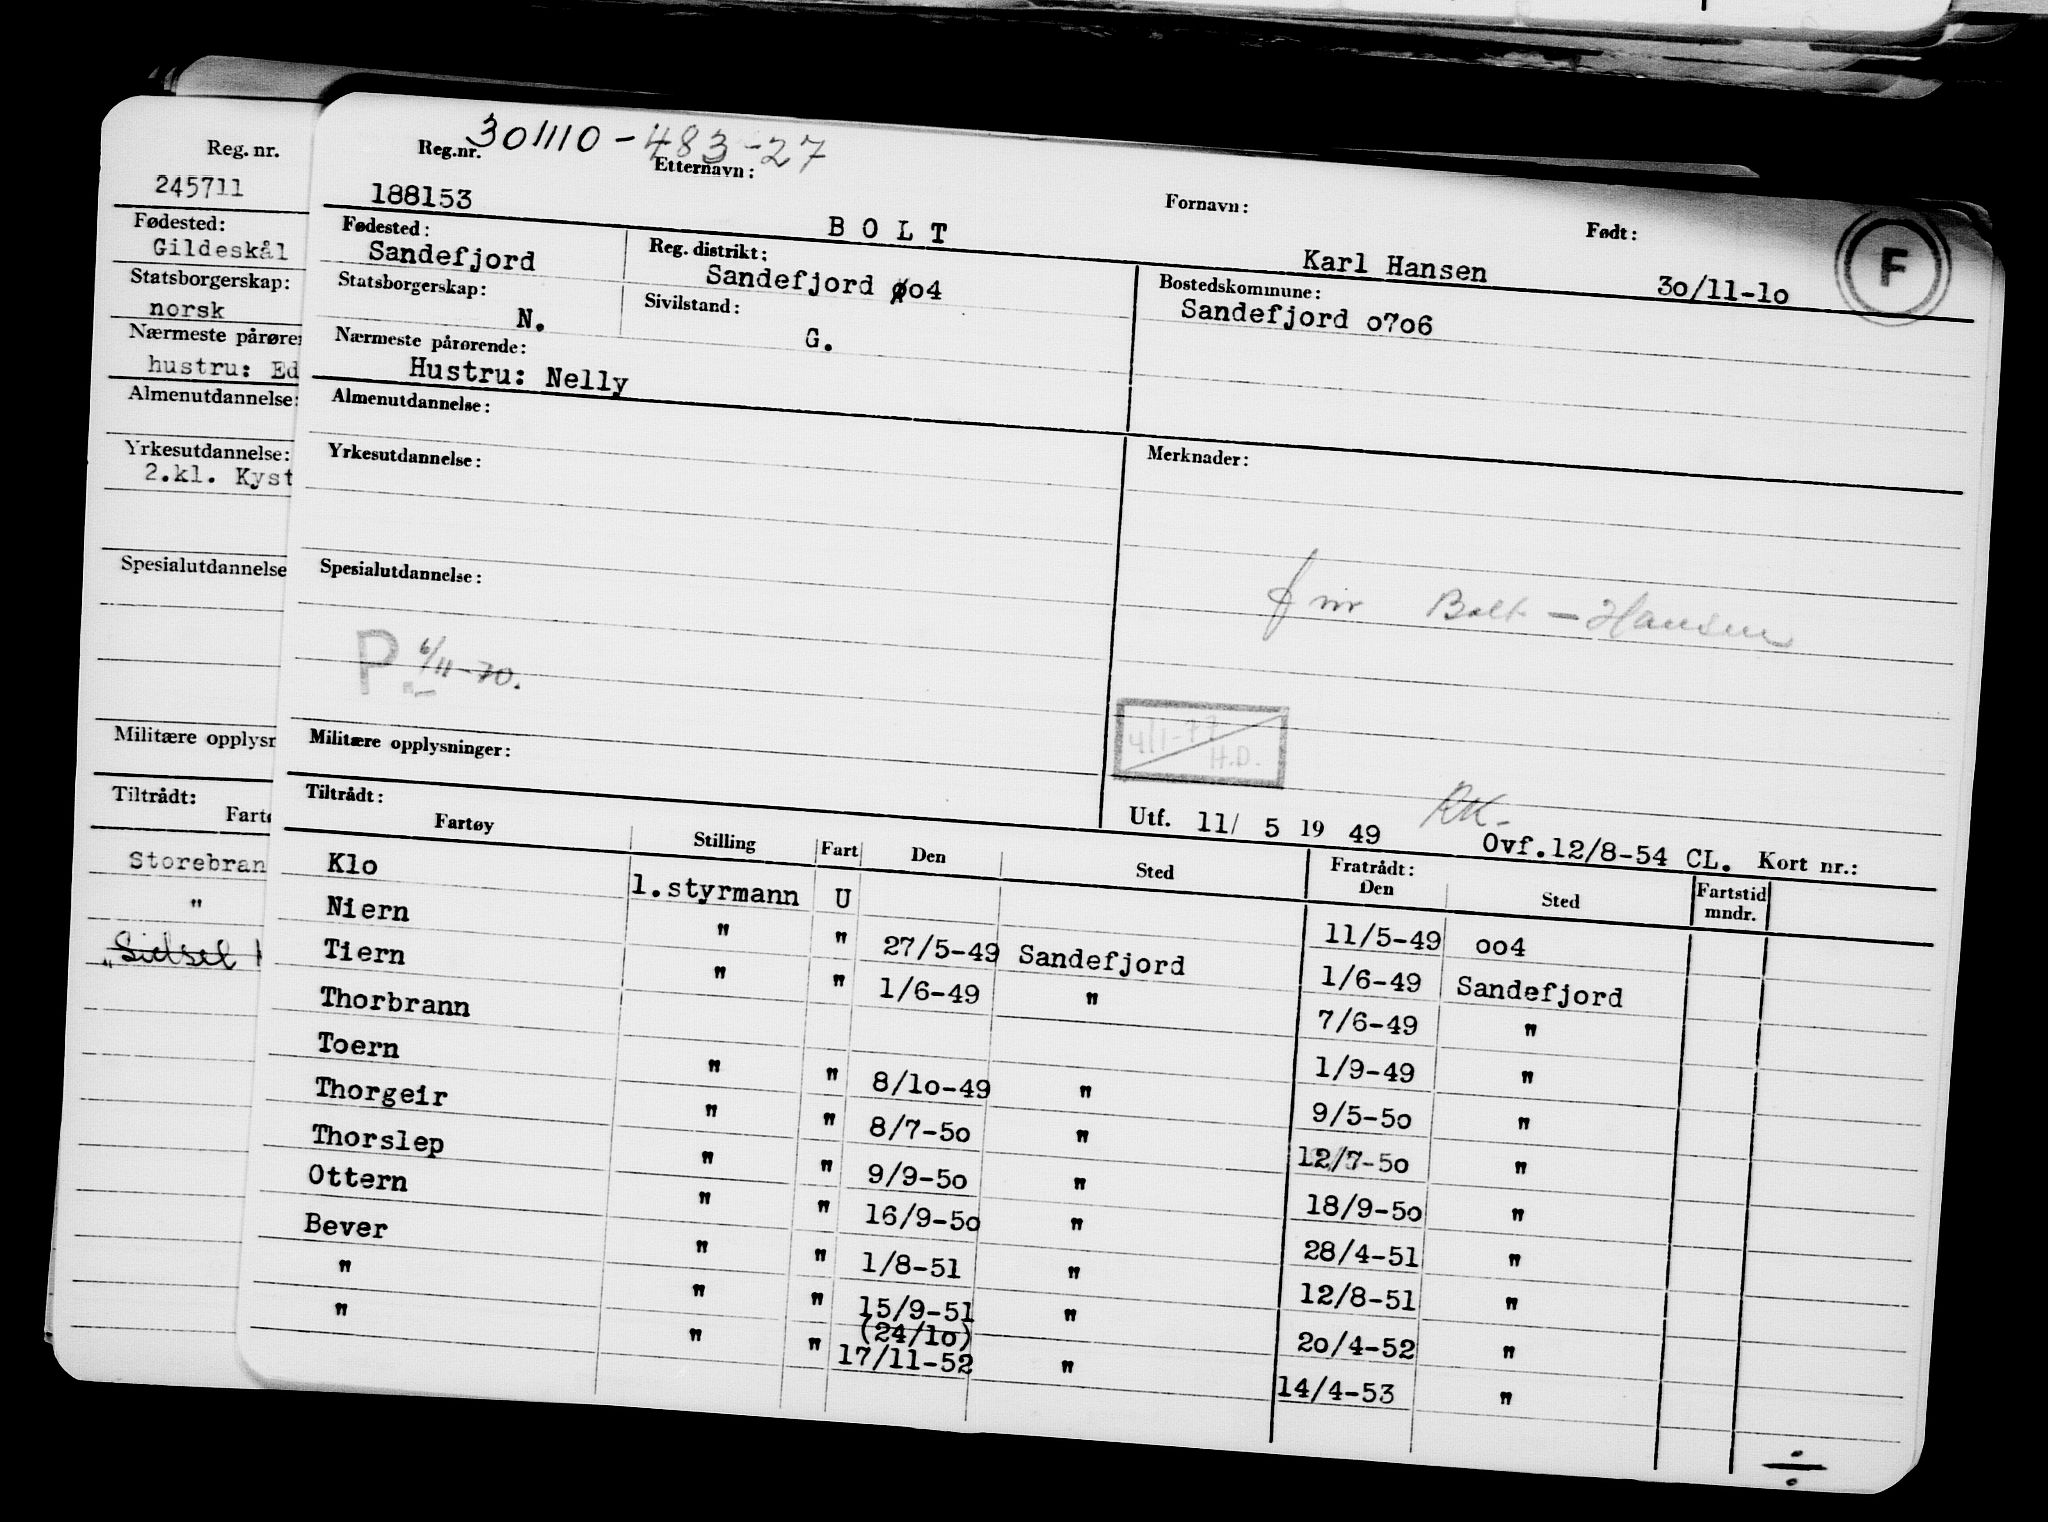 Reg. nr.
245711
Fødested:
Gildeskål
Statsborgerskap:
norsk
Nærmeste pårører
hustru: Ed
Almenutdannelse:
Yrkesutdannelse:
2.kl. Kyst
Spesialutdannelse
Militære opplysn
Tiltrådt:
Fartø
Storebran
"
Sidsel
301110-483-27
Reg.nr. Etternavn: Fornavn: Født:
188153 BOLT Karl Hansen 3o/11-1o F
Fødested: Reg. distrikt: Bostedskommune:
Sandefjord Sandefjord oo4 Sandefjord o7o6
Statsborgerskap: Sivilstand:
N. G.
Nærmeste pårørende:
Hustru: Nelly
Almenutdannelse:
Yrkesutdannelse: Merknader:
Spesialutdannelse:
Bolt - Hansen
P. 6/11-70.
4/1-77
H.D.
Militære opplysninger:
RK.
Utf. 11/ 5 19 49 Ovf.12/8-54 CL. Kort nr.:
Tiltrådt: Fratrådt:
Fartøy Stilling Fart Den Sted Den Sted Fartstid mndr.
Klo 1.styrmann U 11/5-49 oo4
Niern " " 27/5-49 Sandefjord 1/6-49 Sandefjord
Tiern " " 1/6-49 " 7/6-49 "
Thorbrann 1/9-49 "
Toern " " 8/1o-49 " 9/5-5o "
Thorgeir " " 8/7-5o " 12/7-5o "
Thorslep " " 9/9-5o " 18/9-5o "
Ottern " " 16/9-5o " 28/4-51 "
Bever " " 1/8-51 " 12/8-51 "
" " " 15/9-51 " 2o/4-52 "
(24/1o)
" " " 17/11-52 " 14/4-53 "
÷